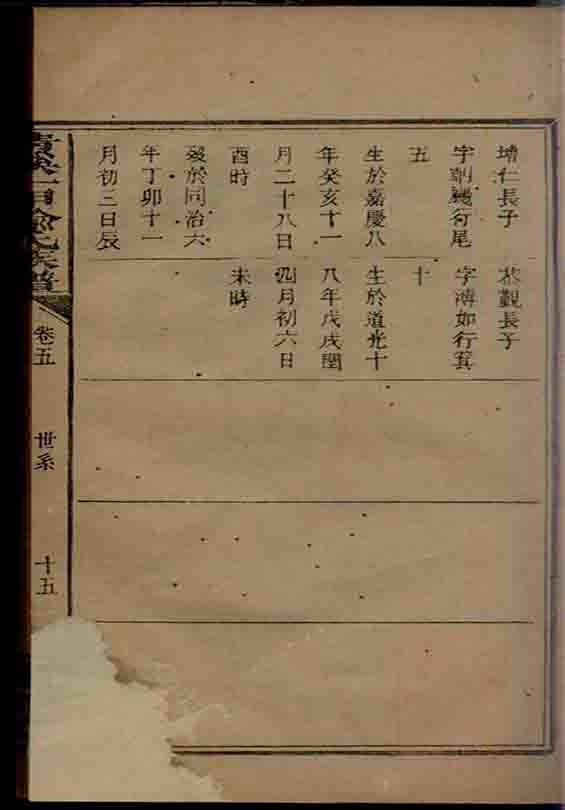 墻仁長子
字朝纓行尾
五
生於嘉慶八
年癸亥十一
月二十八日
酉時
歿於同治六
年丁卯十一
月初三日辰
恭觀長子
字溥如行箕
十
生於道光十
八年戊戌閏
四月初六日
未時
俞氏族譜
卷五
世系
十五